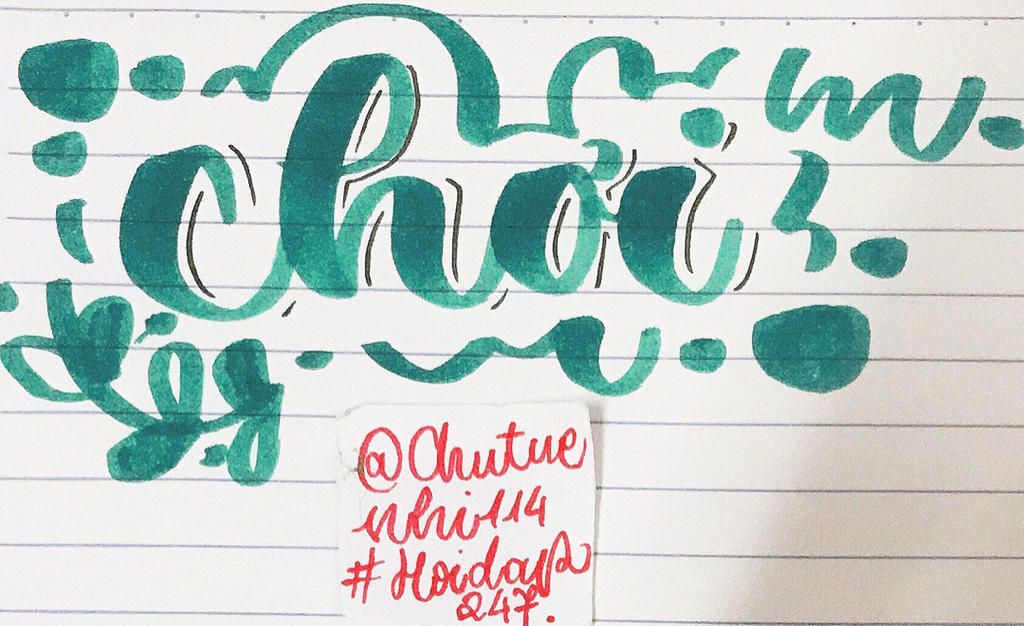 chơi
@Chutue
nhi114
#Hoidap
247.